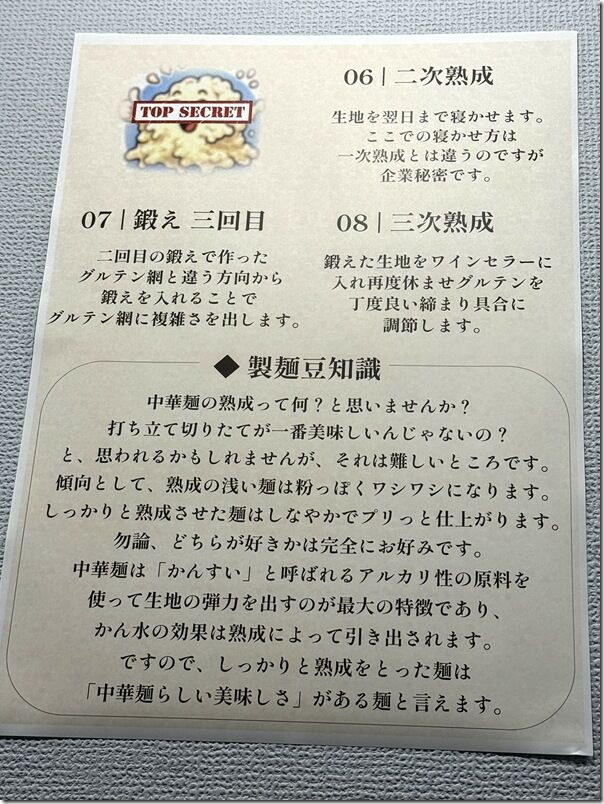 TOP SECRET
06 | 二次熟成
生地を翌日まで寝かせます。
ここでの寝かせ方は
一次熟成とは違うのですが
企業秘密です。
07 | 鍛え 三回目
二回目の鍛えで作った
グルテン網と違う方向から
鍛えを入れることで
グルテン網に複雑さを出します。
08 | 三次熟成
鍛えた生地をワインセラーに
入れ再度休ませグルテンを
丁度良い締まり具合に
調節します。
◆ 製麺豆知識
中華麺の熟成って何？と思いませんか？
打ち立て切りたてが一番美味しいんじゃないの？
と、思われるかもしれませんが、それは難しいところです。
傾向として、熟成の浅い麺は粉っぽくワシワシになります。
しっかりと熟成させた麺はしなやかでプリっと仕上がります。
勿論、どちらが好きかは完全にお好みです。
中華麺は「かんすい」と呼ばれるアルカリ性の原料を
使って生地の弾力を出すのが最大の特徴であり、
かん水の効果は熟成によって引き出されます。
ですので、しっかりと熟成をとった麺は
「中華麺らしい美味しさ」がある麺と言えます。